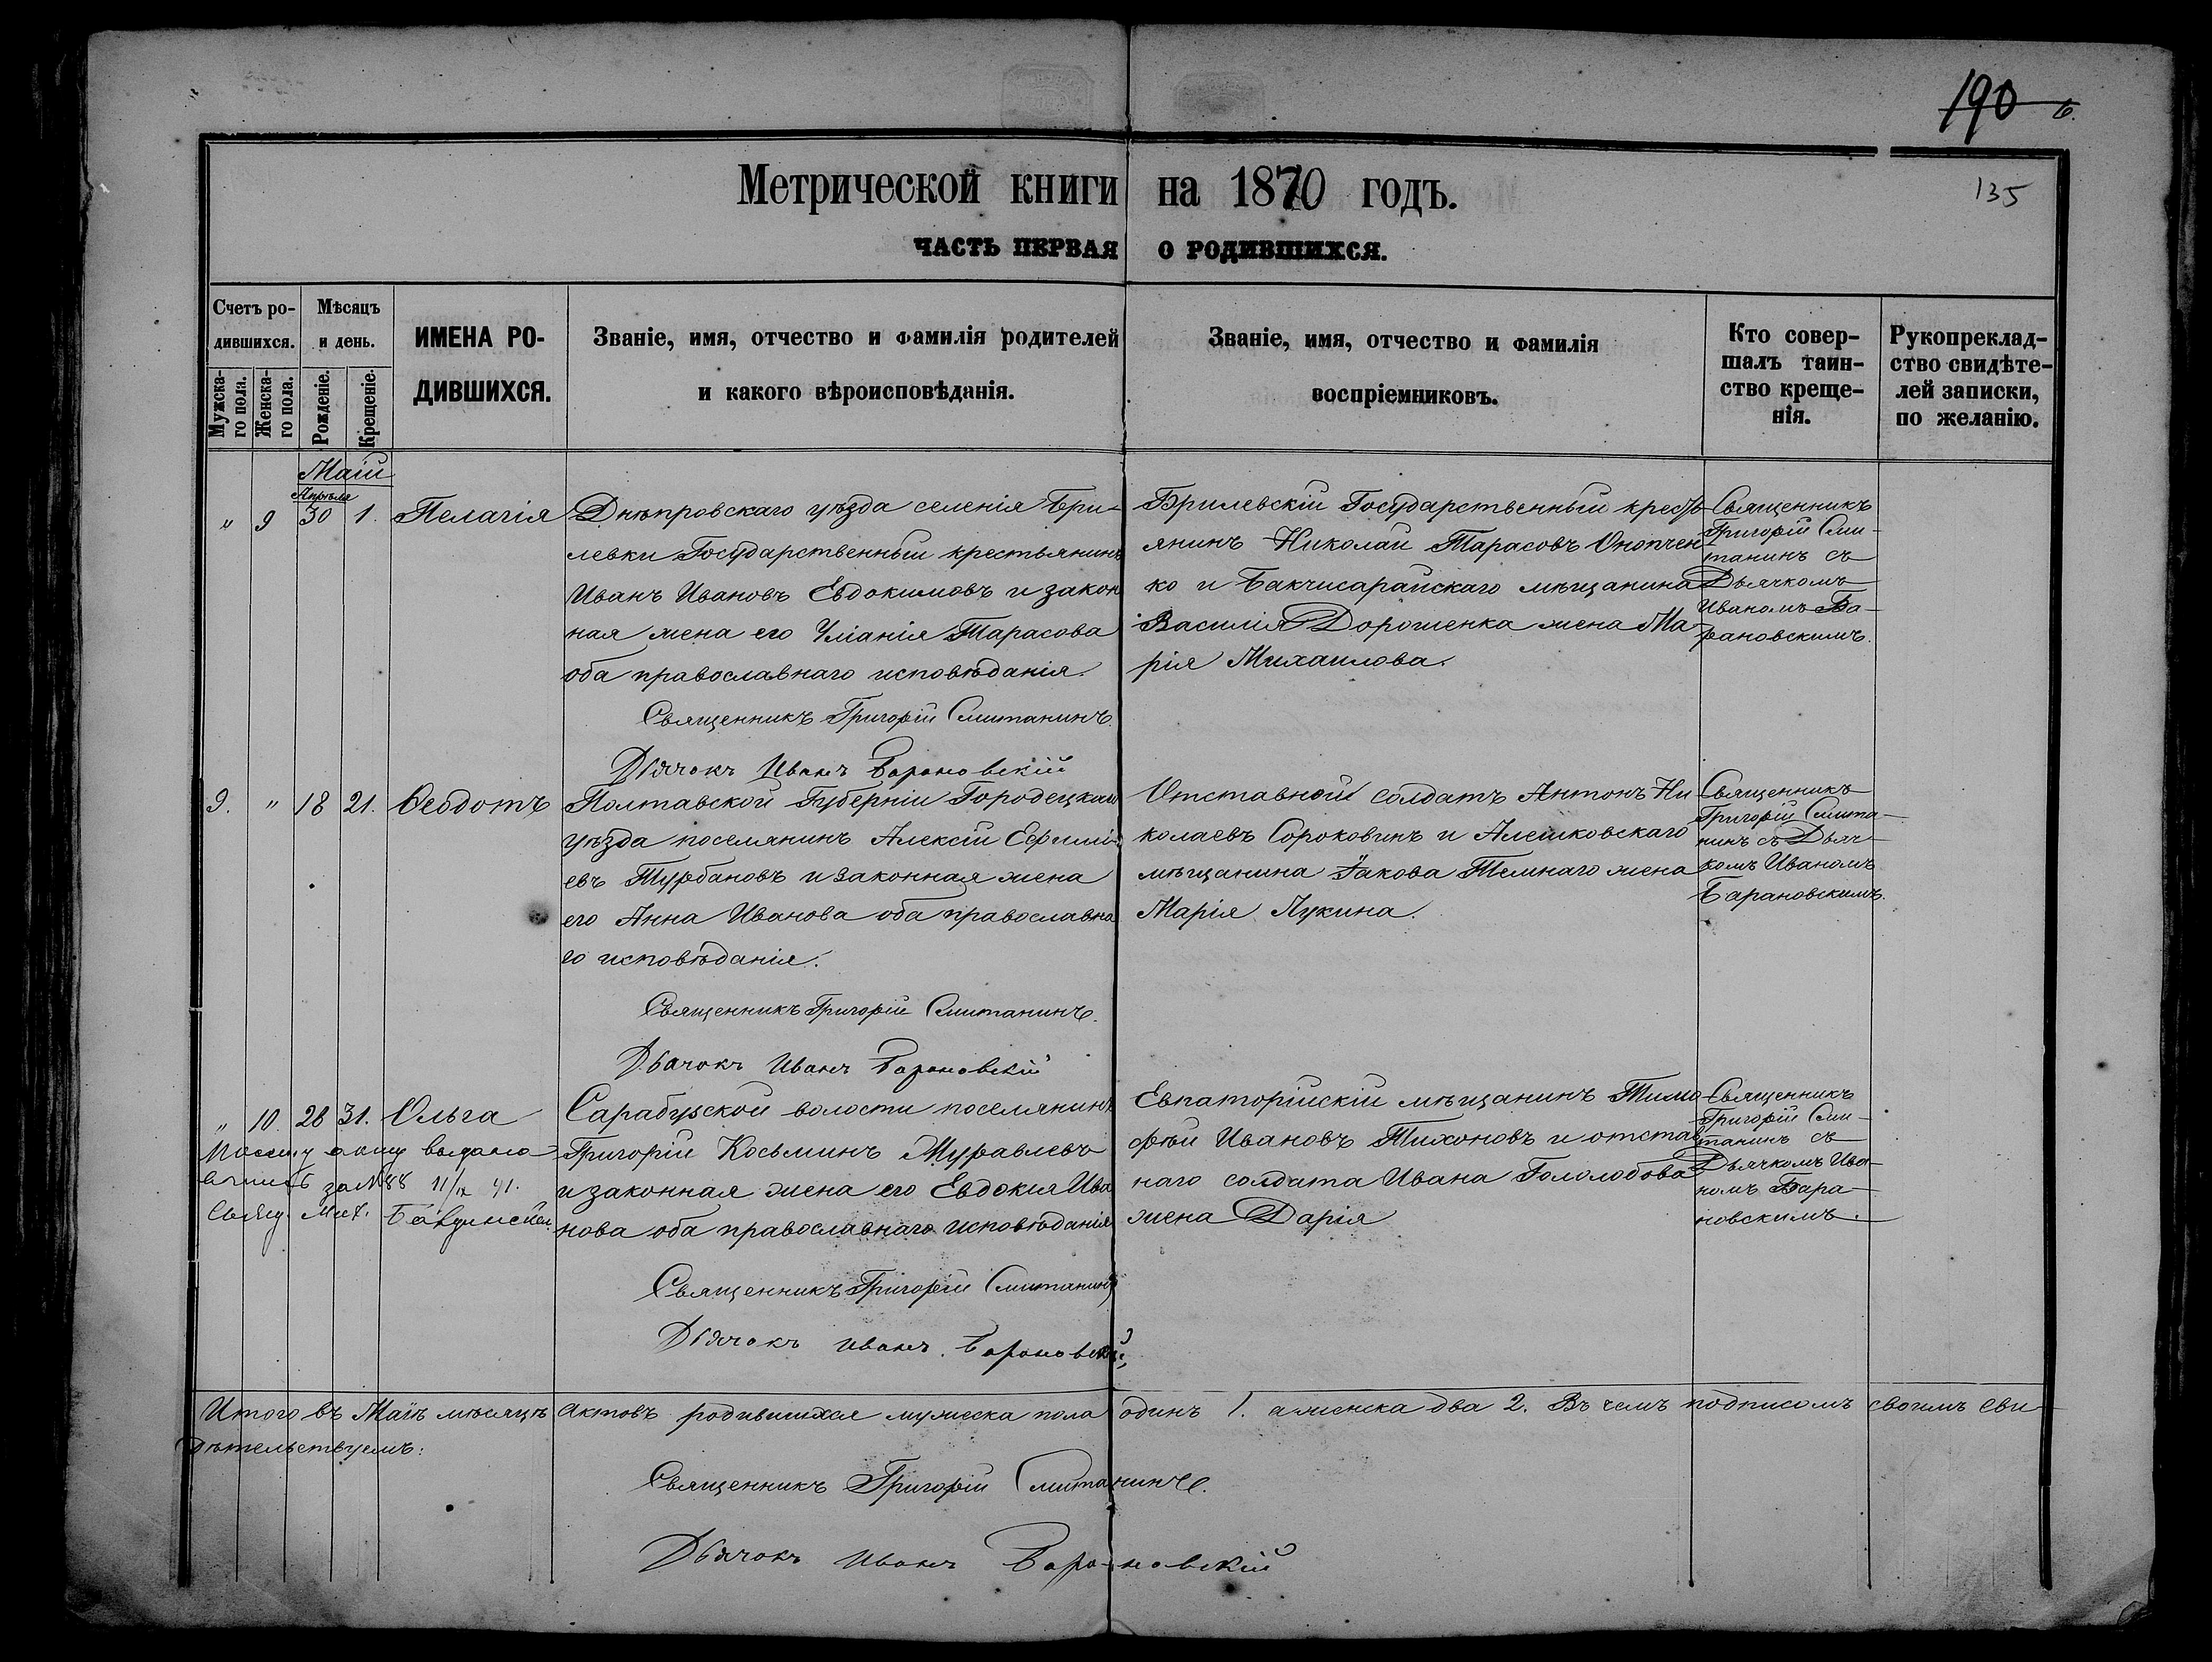 190 б.
135
Метрической книги на 1870 годъ.
ЧАСТЬ ПЕРВАЯ О РОДИВШИХСЯ.
Счетъ ро-
дившихся.
Мужска-
го пола.
Женска-
го пола.
Мѣсяцъ
и день.
Рожденіе.
Крещеніе.
ИМЕНА РО-
ДИВШИХСЯ.
Званіе, имя, отчество и фамилія родителей
и какого вѣроисповѣданія.
Званіе, имя, отчество и фамилія
воспріемниковъ.
Кто совер-
шалъ таин-
ство креще-
нія.
Рукопреклад-
ство свидѣте-
лей записки,
по желанію.
Маій
Апрѣля
" 9 30 1. Пелагія
Днѣпровскаго уѣзда селенія Бри-
левки Государственный крестьянинъ
Иванъ Ивановъ Евдокимовъ и закон
ная жена его Уліанія Тарасова
оба православнаго исповѣданія.
Священникъ Григорій Смитанинъ.
Дьячокъ Иванъ Барановскій
Брилевскій Государственный кресть-
янинъ Николай Тарасовъ Онопчен
ко и Бакчисарайскаго мѣщанина
Василія Дорошенка жена Ма-
рія Михаилова.
Священникъ
Григорій Сми-
танинъ съ
Дьячкомъ
Иваномъ Ба-
рановскимъ.
9. " 18 21. Ѳеодотъ
Полтавской Губерніи Городецкаго
уѣзда поселянинъ Алексій Ефимі-
евъ Турбановъ и законная жена
его Анна Иванова оба православна
го исповѣданія.
Священникъ Григорій Смитанинъ.
Дьячокъ Иванъ Барановскій
Отставной солдатъ Антонъ Ни
колаевъ Сороковинъ и Алешковскаго
мѣщанина Іакова Темнаго жена
Марія Лукина.
Священникъ
Григорій Смита-
нинъ съ Дьяч-
комъ Иваномъ
Барановскимъ.
" 10 28 31. Ольга
выдана
за № 88 11/IX 41.
Сарабузской волости поселянинъ
Григорій Косьминъ Муравлевъ
и законная жена его Евдокія Ива
нова оба православнаго исповѣданія
Священникъ Григорій Смитанинъ
Дьячокъ Иванъ Барановскій,
Евпаторійскій мѣщанинъ Тимо
фѣй Ивановъ Тихоновъ и отстав
наго солдата Ивана Гололобова
жена Дарія
Священникъ
Григорій Сми-
танинъ съ
Дьячкомъ Ива-
номъ Бара-
новскимъ.
Итого въ Маіѣ мѣсяцѣ актовъ родившихся мужеска пола одинъ 1. а женска два 2. Въ чемъ подписомъ своимъ сви
дѣтельствуемъ:
Священникъ Григорій Смитанинъ.
Дьячокъ Иванъ Барановскій